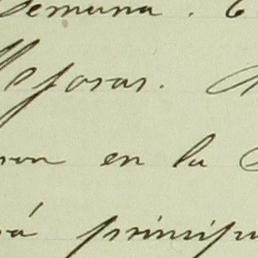 Semana.
Mejoras.
ron en la
rá princip